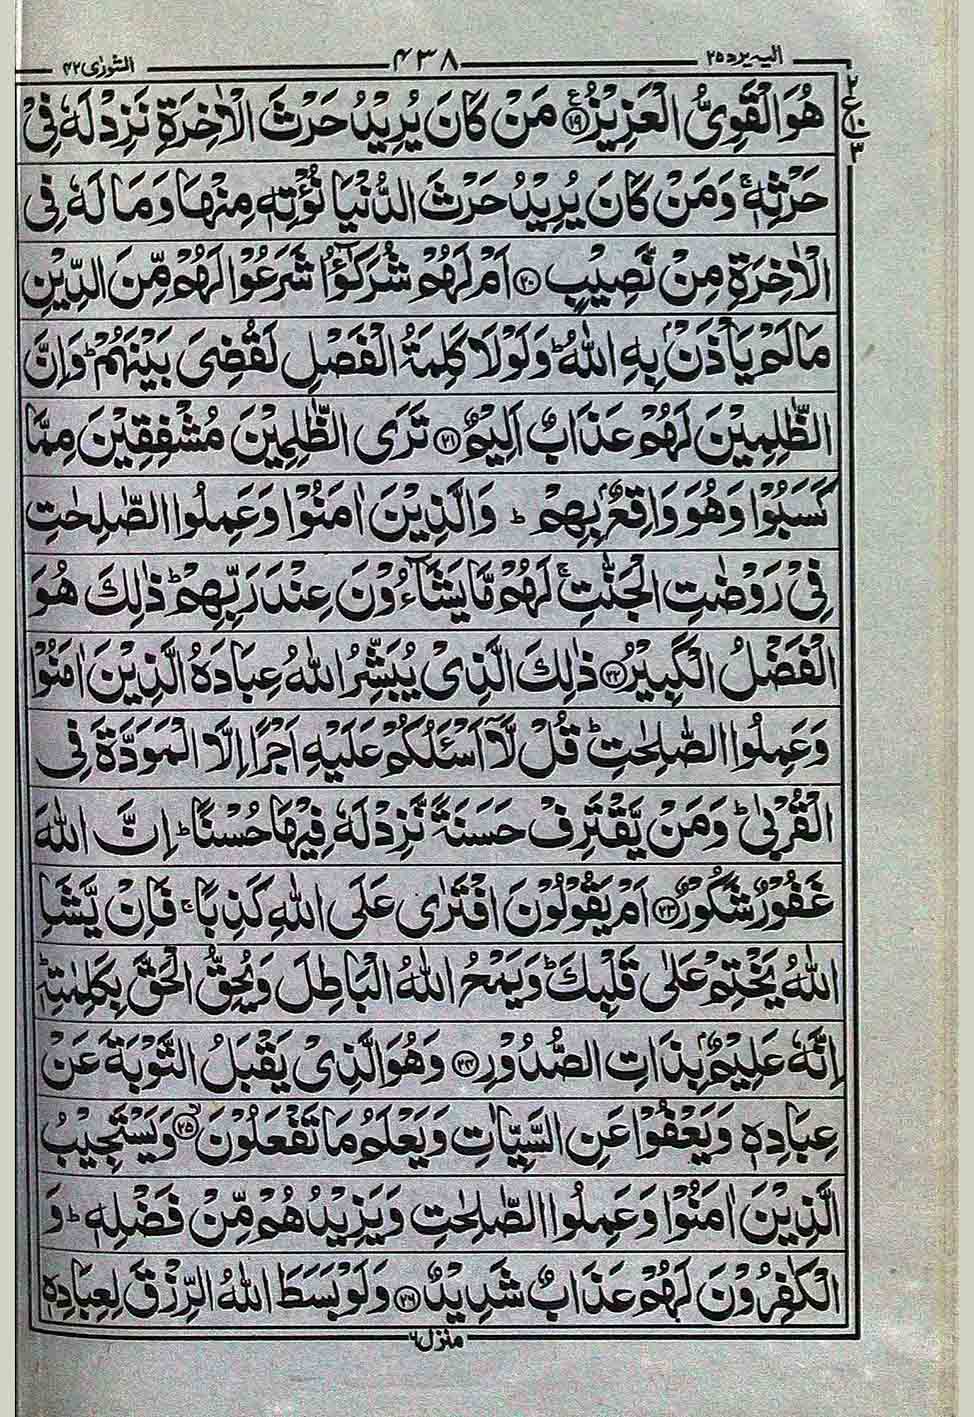 الشورٰى ۴۲ ۴۳۸ اليه يرد ۲۵
هُوَ الْقَوِىُّ الْعَزِيْزُ ۝۱۹ مَنْ كَانَ يُرِيْدُ حَرْثَ الْاٰخِرَةِ نَزِدْ لَهٗ فِىْ
حَرْثِهٖ ۚ وَمَنْ كَانَ يُرِيْدُ حَرْثَ الدُّنْيَا نُؤْتِهٖ مِنْهَا وَمَا لَهٗ فِى
الْاٰخِرَةِ مِنْ نَّصِيْبٍ ۝۲۰ اَمْ لَهُمْ شُرَكٰٓؤُا شَرَعُوْا لَهُمْ مِّنَ الدِّيْنِ
مَا لَمْ يَاْذَنْۢ بِهِ اللّٰهُ ؕ وَلَوْلَا كَلِمَةُ الْفَصْلِ لَقُضِىَ بَيْنَهُمْ ؕ وَاِنَّ
الظّٰلِمِيْنَ لَهُمْ عَذَابٌ اَلِيْمٌ ۝۲۱ تَرَى الظّٰلِمِيْنَ مُشْفِقِيْنَ مِمَّا
كَسَبُوْا وَهُوَ وَاقِعٌۢ بِهِمْ ؕ وَالَّذِيْنَ اٰمَنُوْا وَعَمِلُوا الصّٰلِحٰتِ
فِىْ رَوْضٰتِ الْجَنّٰتِ ۚ لَهُمْ مَّا يَشَآءُوْنَ عِنْدَ رَبِّهِمْ ؕ ذٰلِكَ هُوَ
الْفَضْلُ الْكَبِيْرُ ۝۲۲ ذٰلِكَ الَّذِىْ يُبَشِّرُ اللّٰهُ عِبَادَهُ الَّذِيْنَ اٰمَنُوْا
وَعَمِلُوا الصّٰلِحٰتِ ؕ قُلْ لَّآ اَسْـَٔلُكُمْ عَلَيْهِ اَجْرًا اِلَّا الْمَوَدَّةَ فِى
الْقُرْبٰى ؕ وَمَنْ يَّقْتَرِفْ حَسَنَةً نَّزِدْ لَهٗ فِيْهَا حُسْنًا ؕ اِنَّ اللّٰهَ
غَفُوْرٌ شَكُوْرٌ ۝۲۳ اَمْ يَقُوْلُوْنَ افْتَرٰى عَلَى اللّٰهِ كَذِبًا ۚ فَاِنْ يَّشَاِ
اللّٰهُ يَخْتِمْ عَلٰى قَلْبِكَ ؕ وَيَمْحُ اللّٰهُ الْبَاطِلَ وَيُحِقُّ الْحَقَّ بِكَلِمٰتِهٖ ؕ
اِنَّهٗ عَلِيْمٌۢ بِذَاتِ الصُّدُوْرِ ۝۲۴ وَهُوَ الَّذِىْ يَقْبَلُ التَّوْبَةَ عَنْ
عِبَادِهٖ وَيَعْفُوْا عَنِ السَّيِّاٰتِ وَيَعْلَمُ مَا تَفْعَلُوْنَ ۝۲۵ۙ وَيَسْتَجِيْبُ
الَّذِيْنَ اٰمَنُوْا وَعَمِلُوا الصّٰلِحٰتِ وَيَزِيْدُهُمْ مِّنْ فَضْلِهٖ ؕ وَ
الْكٰفِرُوْنَ لَهُمْ عَذَابٌ شَدِيْدٌ ۝۲۶ وَلَوْ بَسَطَ اللّٰهُ الرِّزْقَ لِعِبَادِهٖ
منزل ۶